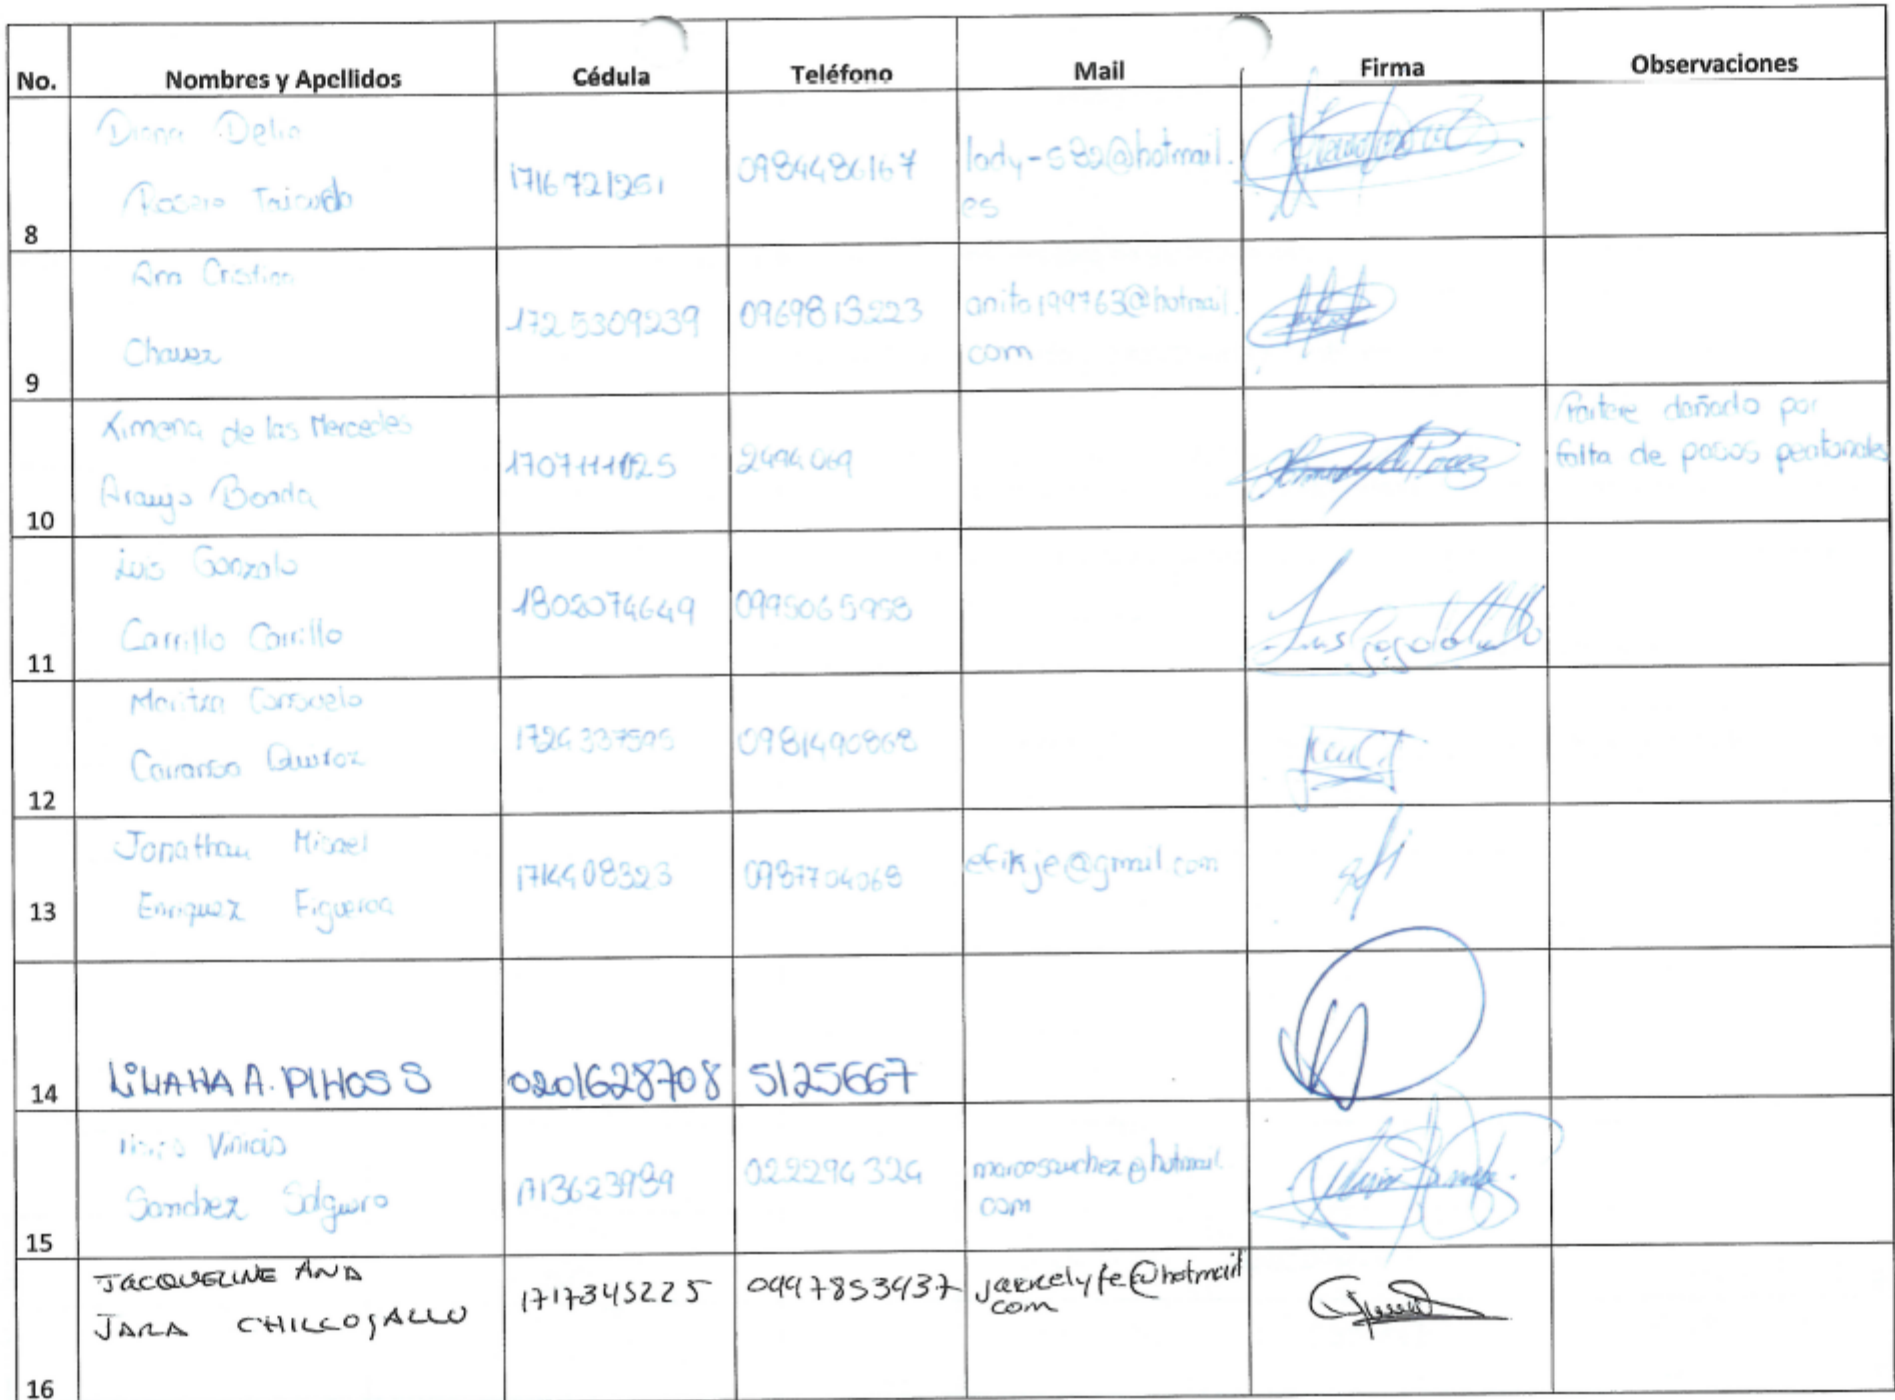 No. Nombres y Apellidos Cédula Teléfono Mail Firma Observaciones
Diana Delia
Rosero
8 1716721251 0984486167 lady-582@hotmail.
es
Ana Cristina
Chavez
9 1725309239 0969813223 anita199763@hotmail.
com
Ximena de las Mercedes
Araujo Bonda
10 1707111025 2494069
dañado por
falta de pasos peatonales
Luis Gonzalo
Carrillo Carrillo
11 1802074649 0995065958
Maritza Consuelo
Carranco Quiroz
12 1724337595 0981490868
Jonathan Misael
Enriquez Figueroa
13 0987704068 efikje@gmail.com
14 LiLiANA A. PIÑOS S 0201628708 5125667
Vinicio
Sanchez Salguero
15 1713623939 022294324 marcossanchez@hotmail
com
JACQUELINE ANA
JARA CHILLOGALLO
16 1717345225 0997853937
com